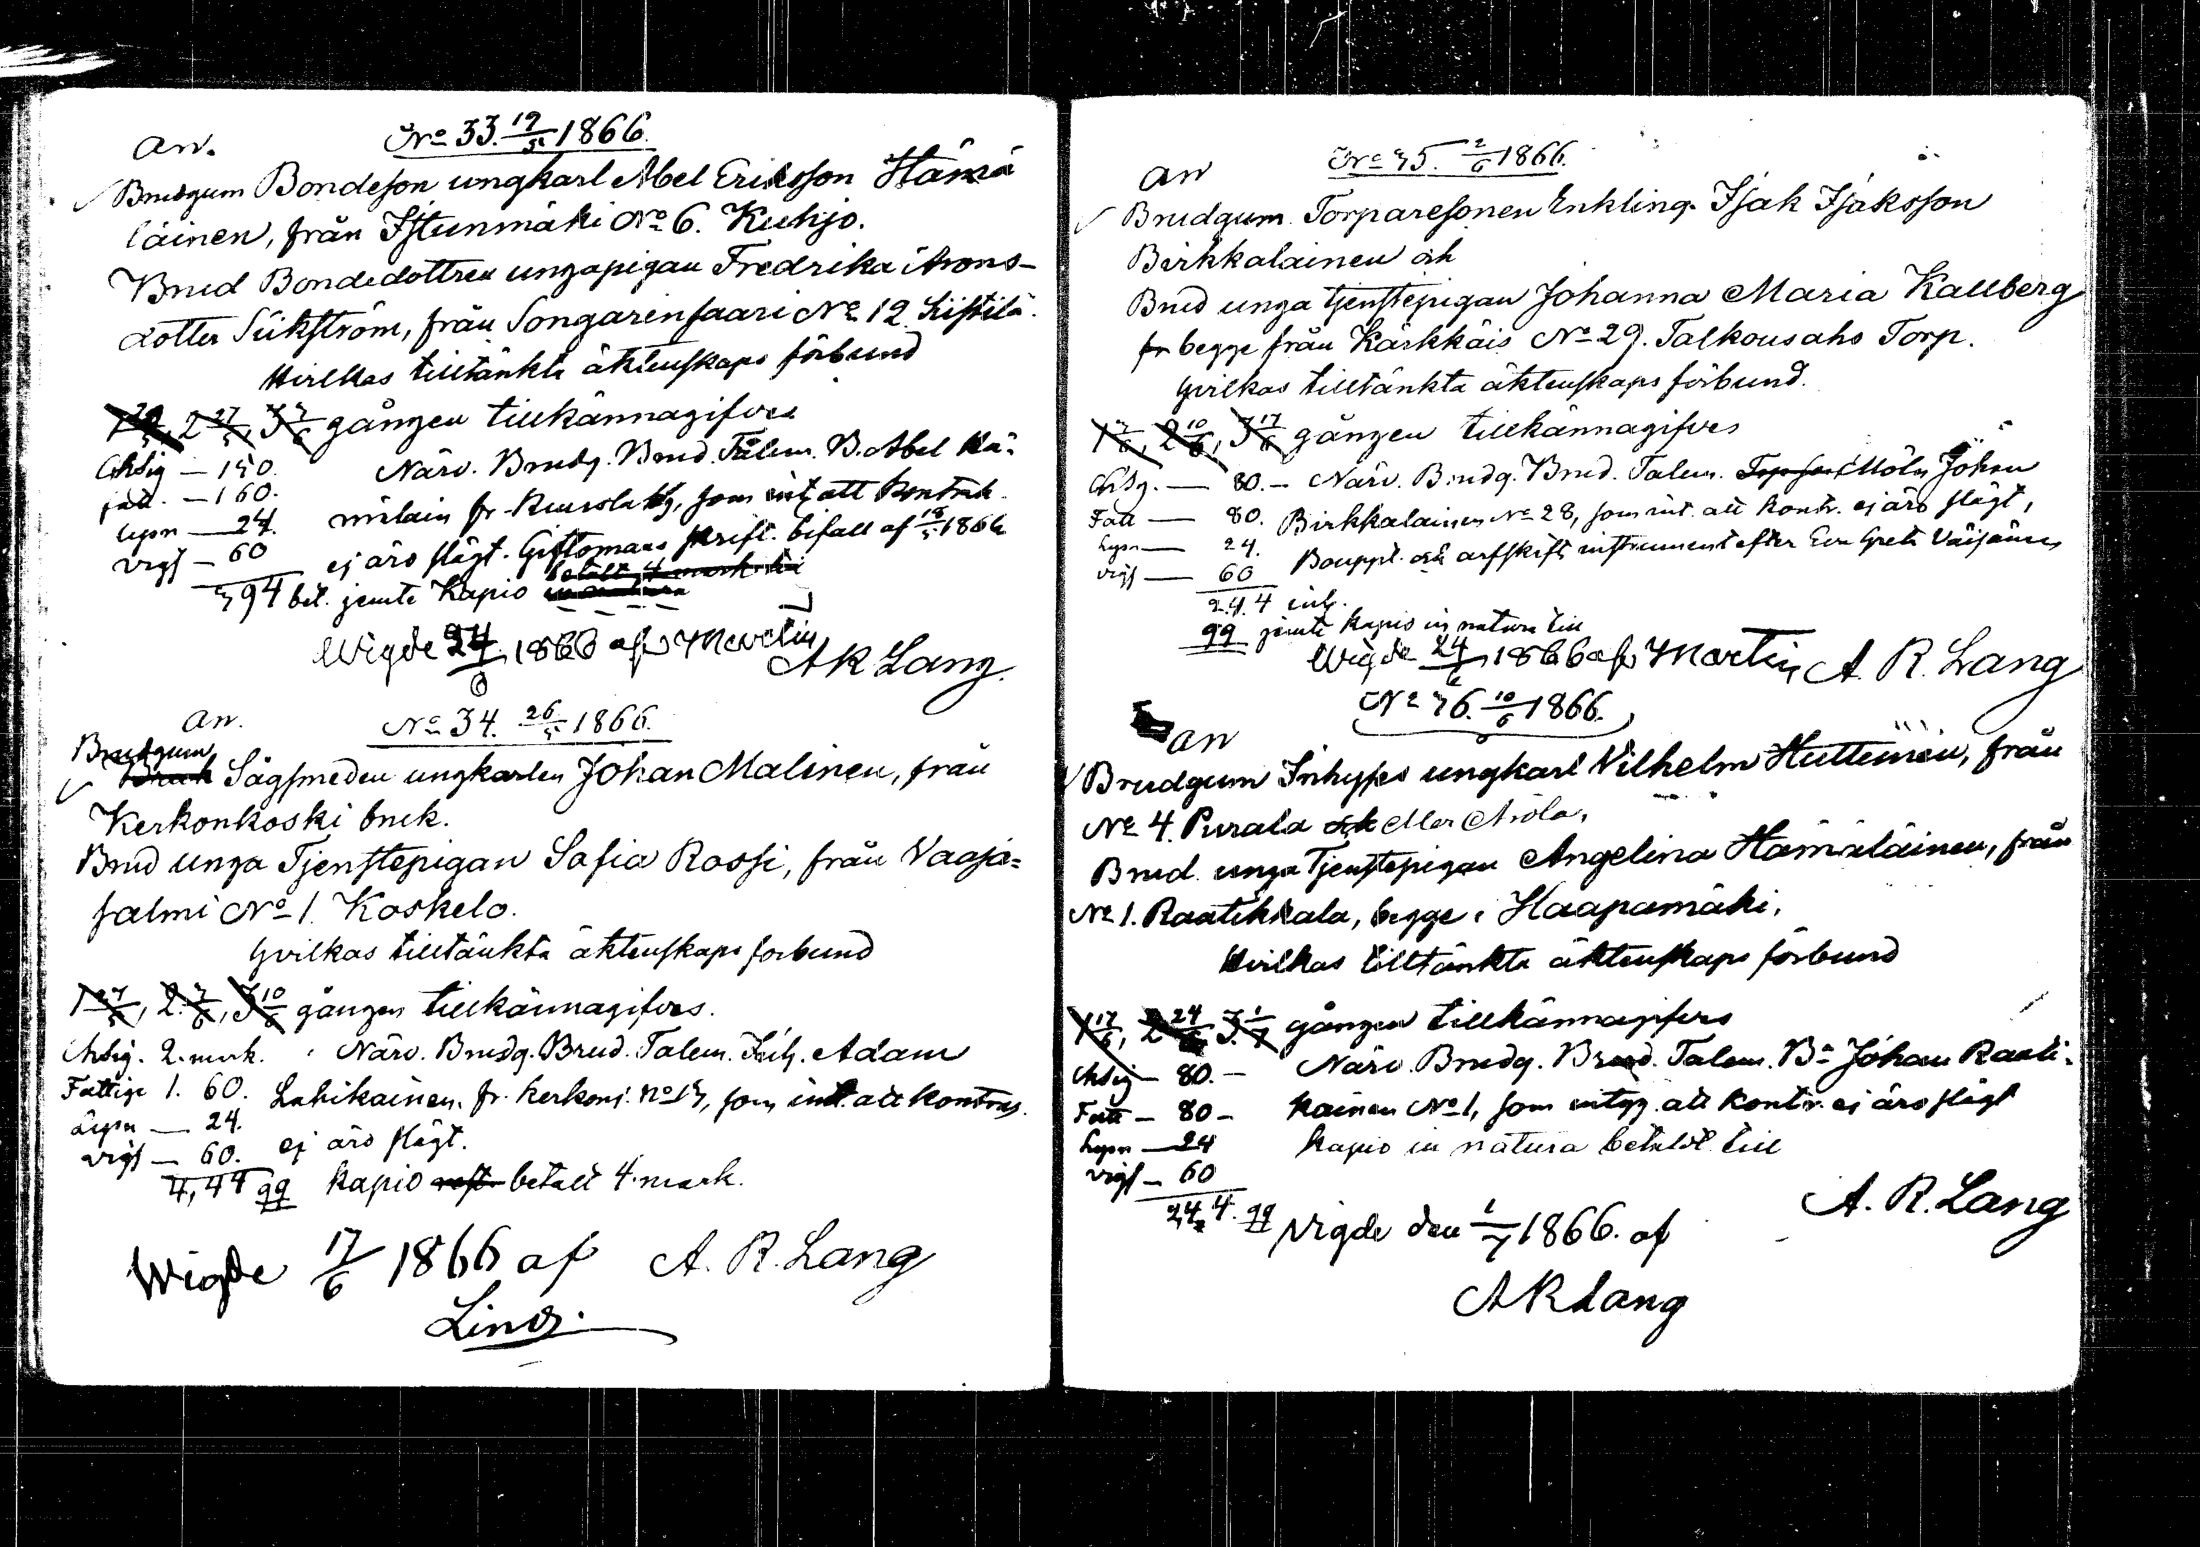 An.
No 33. 19/5 1866.
Brudgum Bondeson ungkarl Abel Eriksson Hämä
läinen, från Istunmäki No 6. Kuhjo.
Brud Bondedottren unga pigan Fredrika Arons-
dotter Siikström, från Songarinsaari No 12.
Hvilkas tilltänkta äktenskaps förbund
1 20/5, 2 27/5, 3 3/6 gången tillkännagifves
150. Närv. Brudg. Brud. Talem. B. Abel Hä-
fatt. — 160. mälain fr. som int. att kontrah.
Lysn — 24. ej äro slägt. Giftomans skrift. bifall af 18/5 1866
vigs — 60
394 bet. jemte Kapio
Wigde 24/6 1866 af Martin
A R Lang.
An.
No 34. 26/5 1866.
Brudgum
Sågsmeden ungkarlen Johan Malinen, från
Kerkonkoski bruk.
Brud unga Tjenstepigan Sofia Rossi, från Vaaja-
salmi No 1. Koskelo.
Hvilkas tilltänkta äktenskaps förbund
1 27/5, 2. 3/6, 3 10/6 gången tillkännagifves.
2. mark. Närv. Brudg. Brud. Talem. Inh. Adam
Fattige 1. 60. Lahikainen, fr. Kerkonj. No 15, som int. att kontrah.
Lysn — 24. ej äro slägt.
vigs — 60.
4,44 Kapio betalt 4. mark.
Wigde 17/6 1866 af A. R. Lang
Lind.
An
No 35. 2/6 1866.
Brudgum Torparesonen Enkling. Isak Isaksson
Birkkalainen och
Brud unga tjenstepigan Johanna Maria Kallberg
fr begge från Kärkkäis No 29. Talkousaho Torp.
Hvilkas tilltänkta äktenskaps förbund.
1 3/6, 2 10/6, 3 17/6 gången tillkännagifves
80. — Närv. Brudg. Brud. Talem. Johan
Fatt — 80. Birkkalainen No 28, som int. att kontr. ej äro slägt,
Lysn — 24. Bouppt. och arfskifts instrument efter Eva Greta Väisänen
vigs — 60
2.4.4 inb.
jemte kapio in natura till
Wigde 24/6 1866 af Martin A. R. Lang
No 36. 10/6 1866.
An
Brudgum Inhyses ungkarl Vilhelm Huttunen, från
No 4. Purala
Brud. unga Tjenstepigan Angelina Hämäläinen, från
No 1. Raatikkala, begge i Haapamäki.
Hvilkas tilltänkta äktenskaps förbund
1 17/6, 2 24/6 3. 1/7 gången tillkännagifves
80. — Närv. Brudg. Brud. Talem. Bo Johan Raati-
Fatt — 80 — kainen No 1, som intyg. att kontr. ej äro slägt
Lysn — 24 Kapio in natura betaldt till
vigs — 60
24.4. A. R. Lang
Vigde den 1/7 1866. af
A R Lang